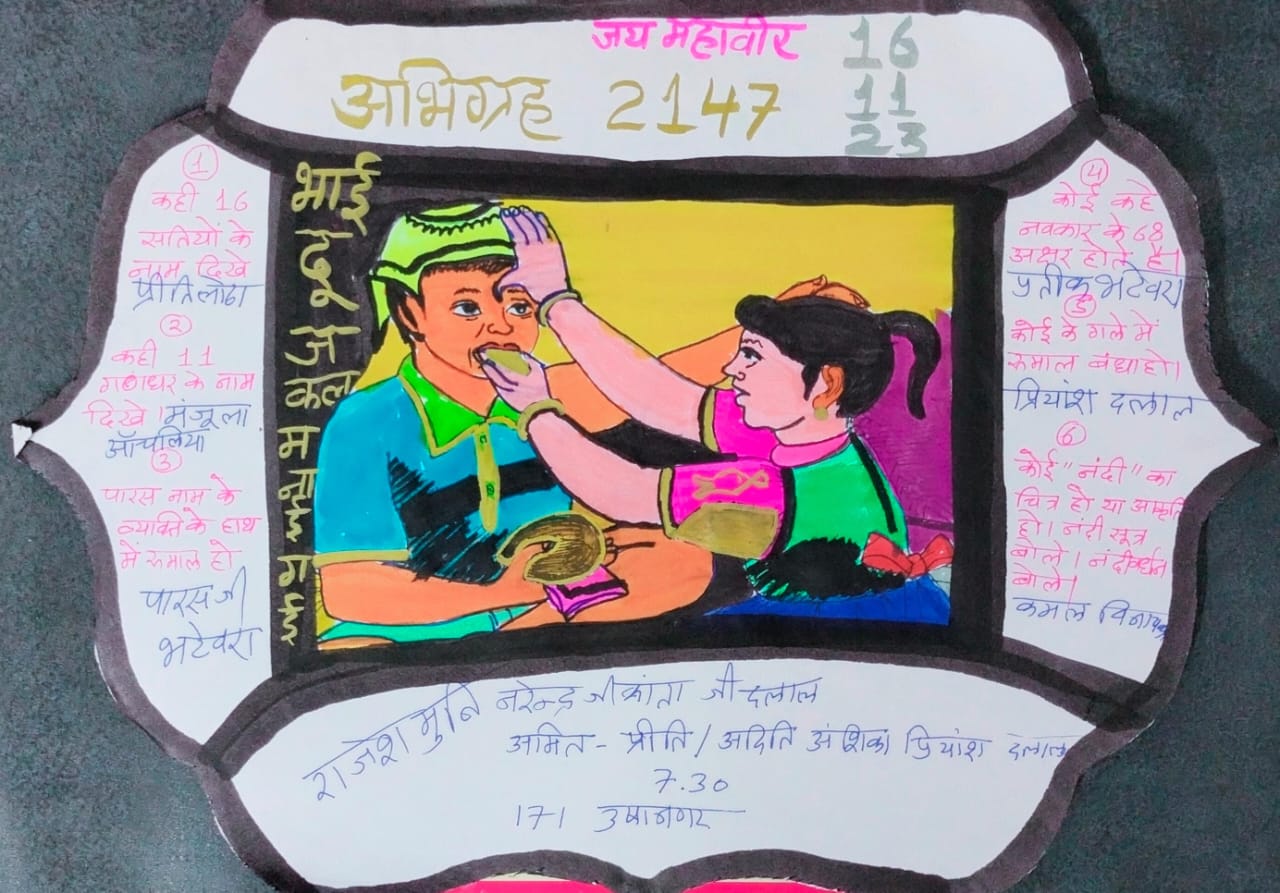 जय महावीर
अभिग्रह 2147
16
11
23
भाई दूज कल मनाई गई
1
कही 16
सतियों के
नाम दिखे
प्रीति लोढा
2
कही 11
गणधर के नाम
दिखे। मंजूला
आँचलिया
3
पारस नाम के
व्यक्ति के हाथ
में रुमाल हो
पारस जी
भटेवरा
4
कोई कहे
नवकार के 68
अक्षर होते हैं।
प्रतीक भटेवरा
5
कोई के गले में
रुमाल बंधा हो।
प्रियांश दलाल
6
कोई "नंदी" का
चित्र हो या आकृति
हो। नंदी सूत्र
बोले। नंदीवर्धन
बोले।
कमल
राजेश मुनि नरेन्द्र जी कांता जी दलाल
अमित - प्रीति / अदिति अंशिका प्रियांश दलाल
7.30
171 उषानगर